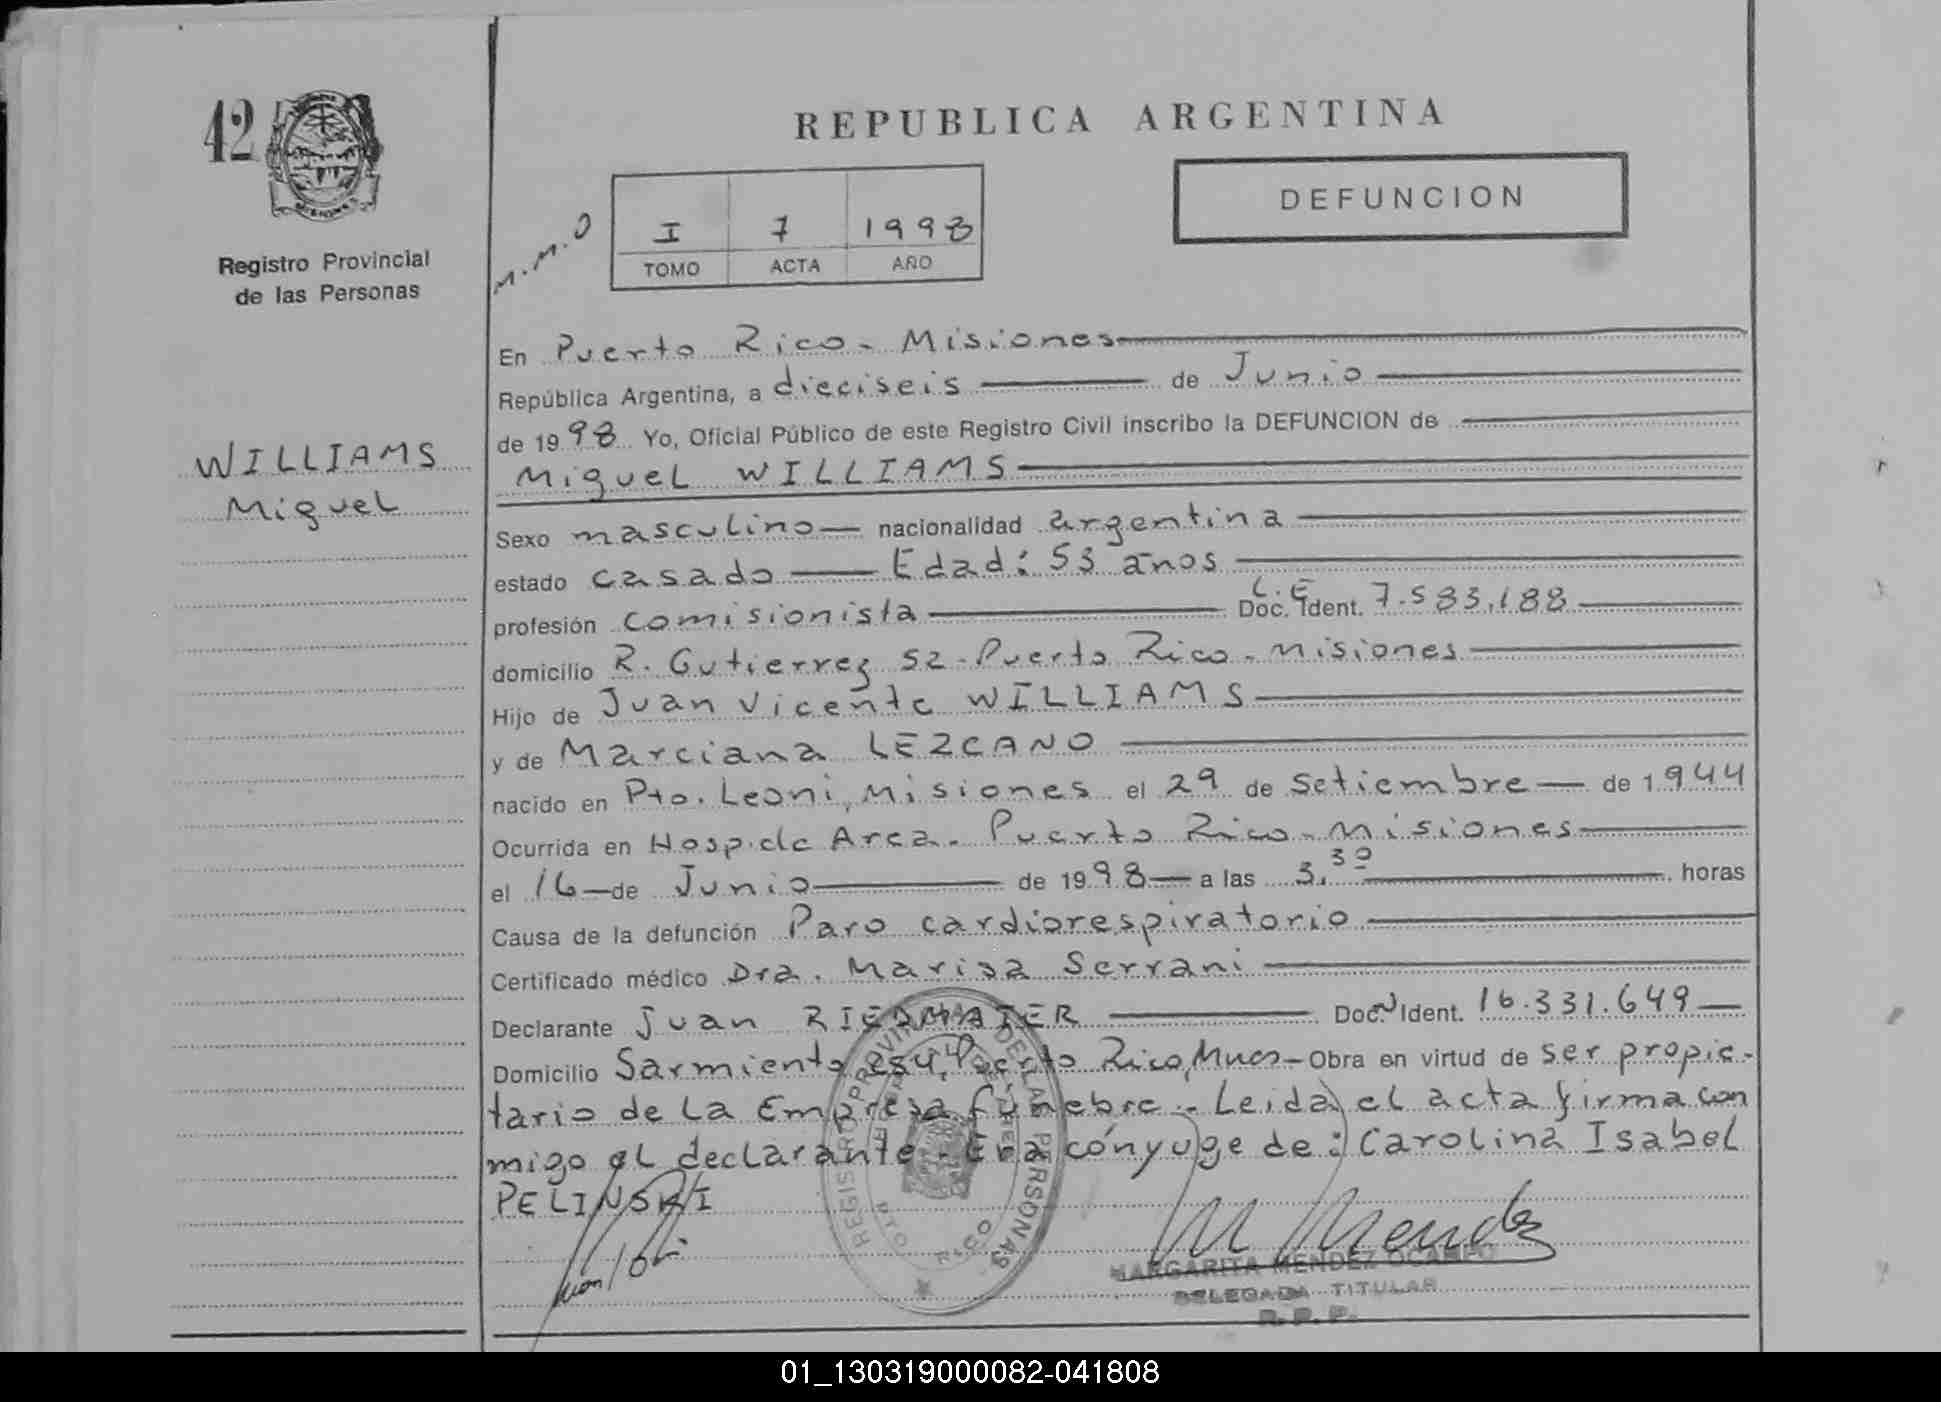 42
REPUBLICA ARGENTINA
DEFUNCION
M.M.O
I 7 1998
TOMO ACTA AÑO
Registro Provincial
de las Personas
WILLIAMS
Miguel
En Puerto Rico - Misiones
República Argentina, a dieciseis de Junio
de 1998 Yo, Oficial Público de este Registro Civil inscribo la DEFUNCION de
Miguel WILLIAMS
Sexo masculino nacionalidad argentina
estado casado Edad: 53 años
profesión comisionista Doc. Ident. L.E 7.583.188
domicilio R. Gutierrez 52 - Puerto Rico - Misiones
Hijo de Juan Vicente WILLIAMS
y de Marciana LEZCANO
nacido en Pto. Leoni, Misiones el 29 de Setiembre de 1944
Ocurrida en Hosp. de Area - Puerto Rico - Misiones
el 16 de Junio de 1998 a las 3,30 horas
Causa de la defunción Paro cardiorespiratorio
Certificado médico Dra. Marisa Serrani
Declarante Juan Doc. Ident. 16.331.649
Domicilio Sarmiento Puerto Rico, Mnes - Obra en virtud de ser propie-
tario de la Empresa fúnebre - Leida el acta firma con
migo el declarante. Era cónyuge de: Carolina Isabel
PELINSKI
REGISTRO PROVINCIAL DE LAS PERSONAS
MARGARITA MENDEZ OCAMPO
DELEGADA TITULAR
R. P. P.
01_130319000082-041808